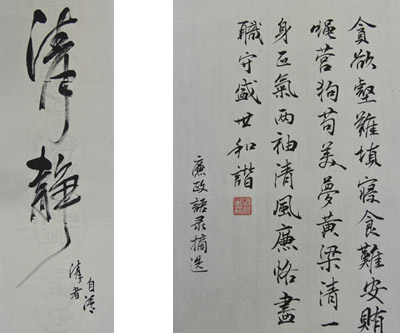 清静
清者
自清
貪欲壑難填寝食難安賄
蝇营狗苟美夢黄梁清一
身正氣两袖清風廉恪盡
職守盛世和諧
廉政語录摘选